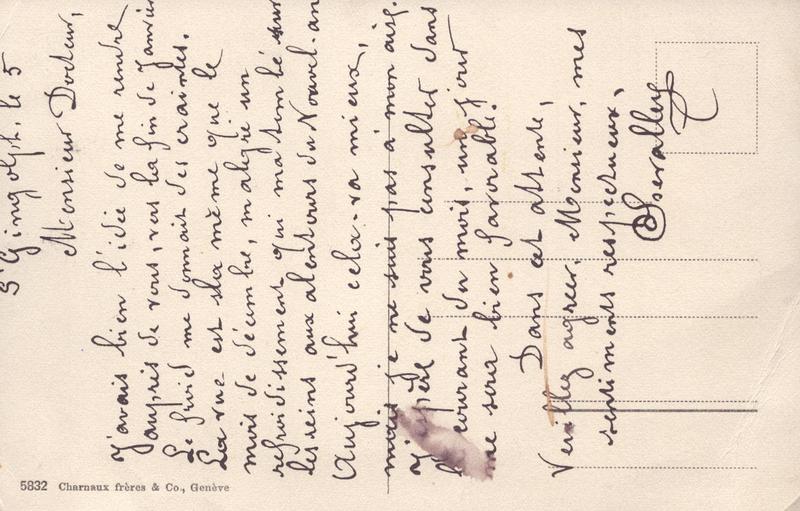 St Gingolph, le 5
Monsieur Docteur,
J'avais bien l'idée de me rendre
auprès de vous, vers la fin de Janvier
Le froid me donnait des craintes.
La vue est la même que le
mois de décembre, malgré un
refroidissement qui m'a tombé sur
les reins aux alentours du Nouvel-an
Aujourd'hui cela-va mieux,
mais je ne suis pas à mon aise.
J'espère de vous consulter dans
le courant du mois, un jour
me sera bien favorable.
Dans cet attente,
Veuillez agréer, Monsieur, mes
sentiments respectueux,
5832 Charnaux frères & Co., Genève